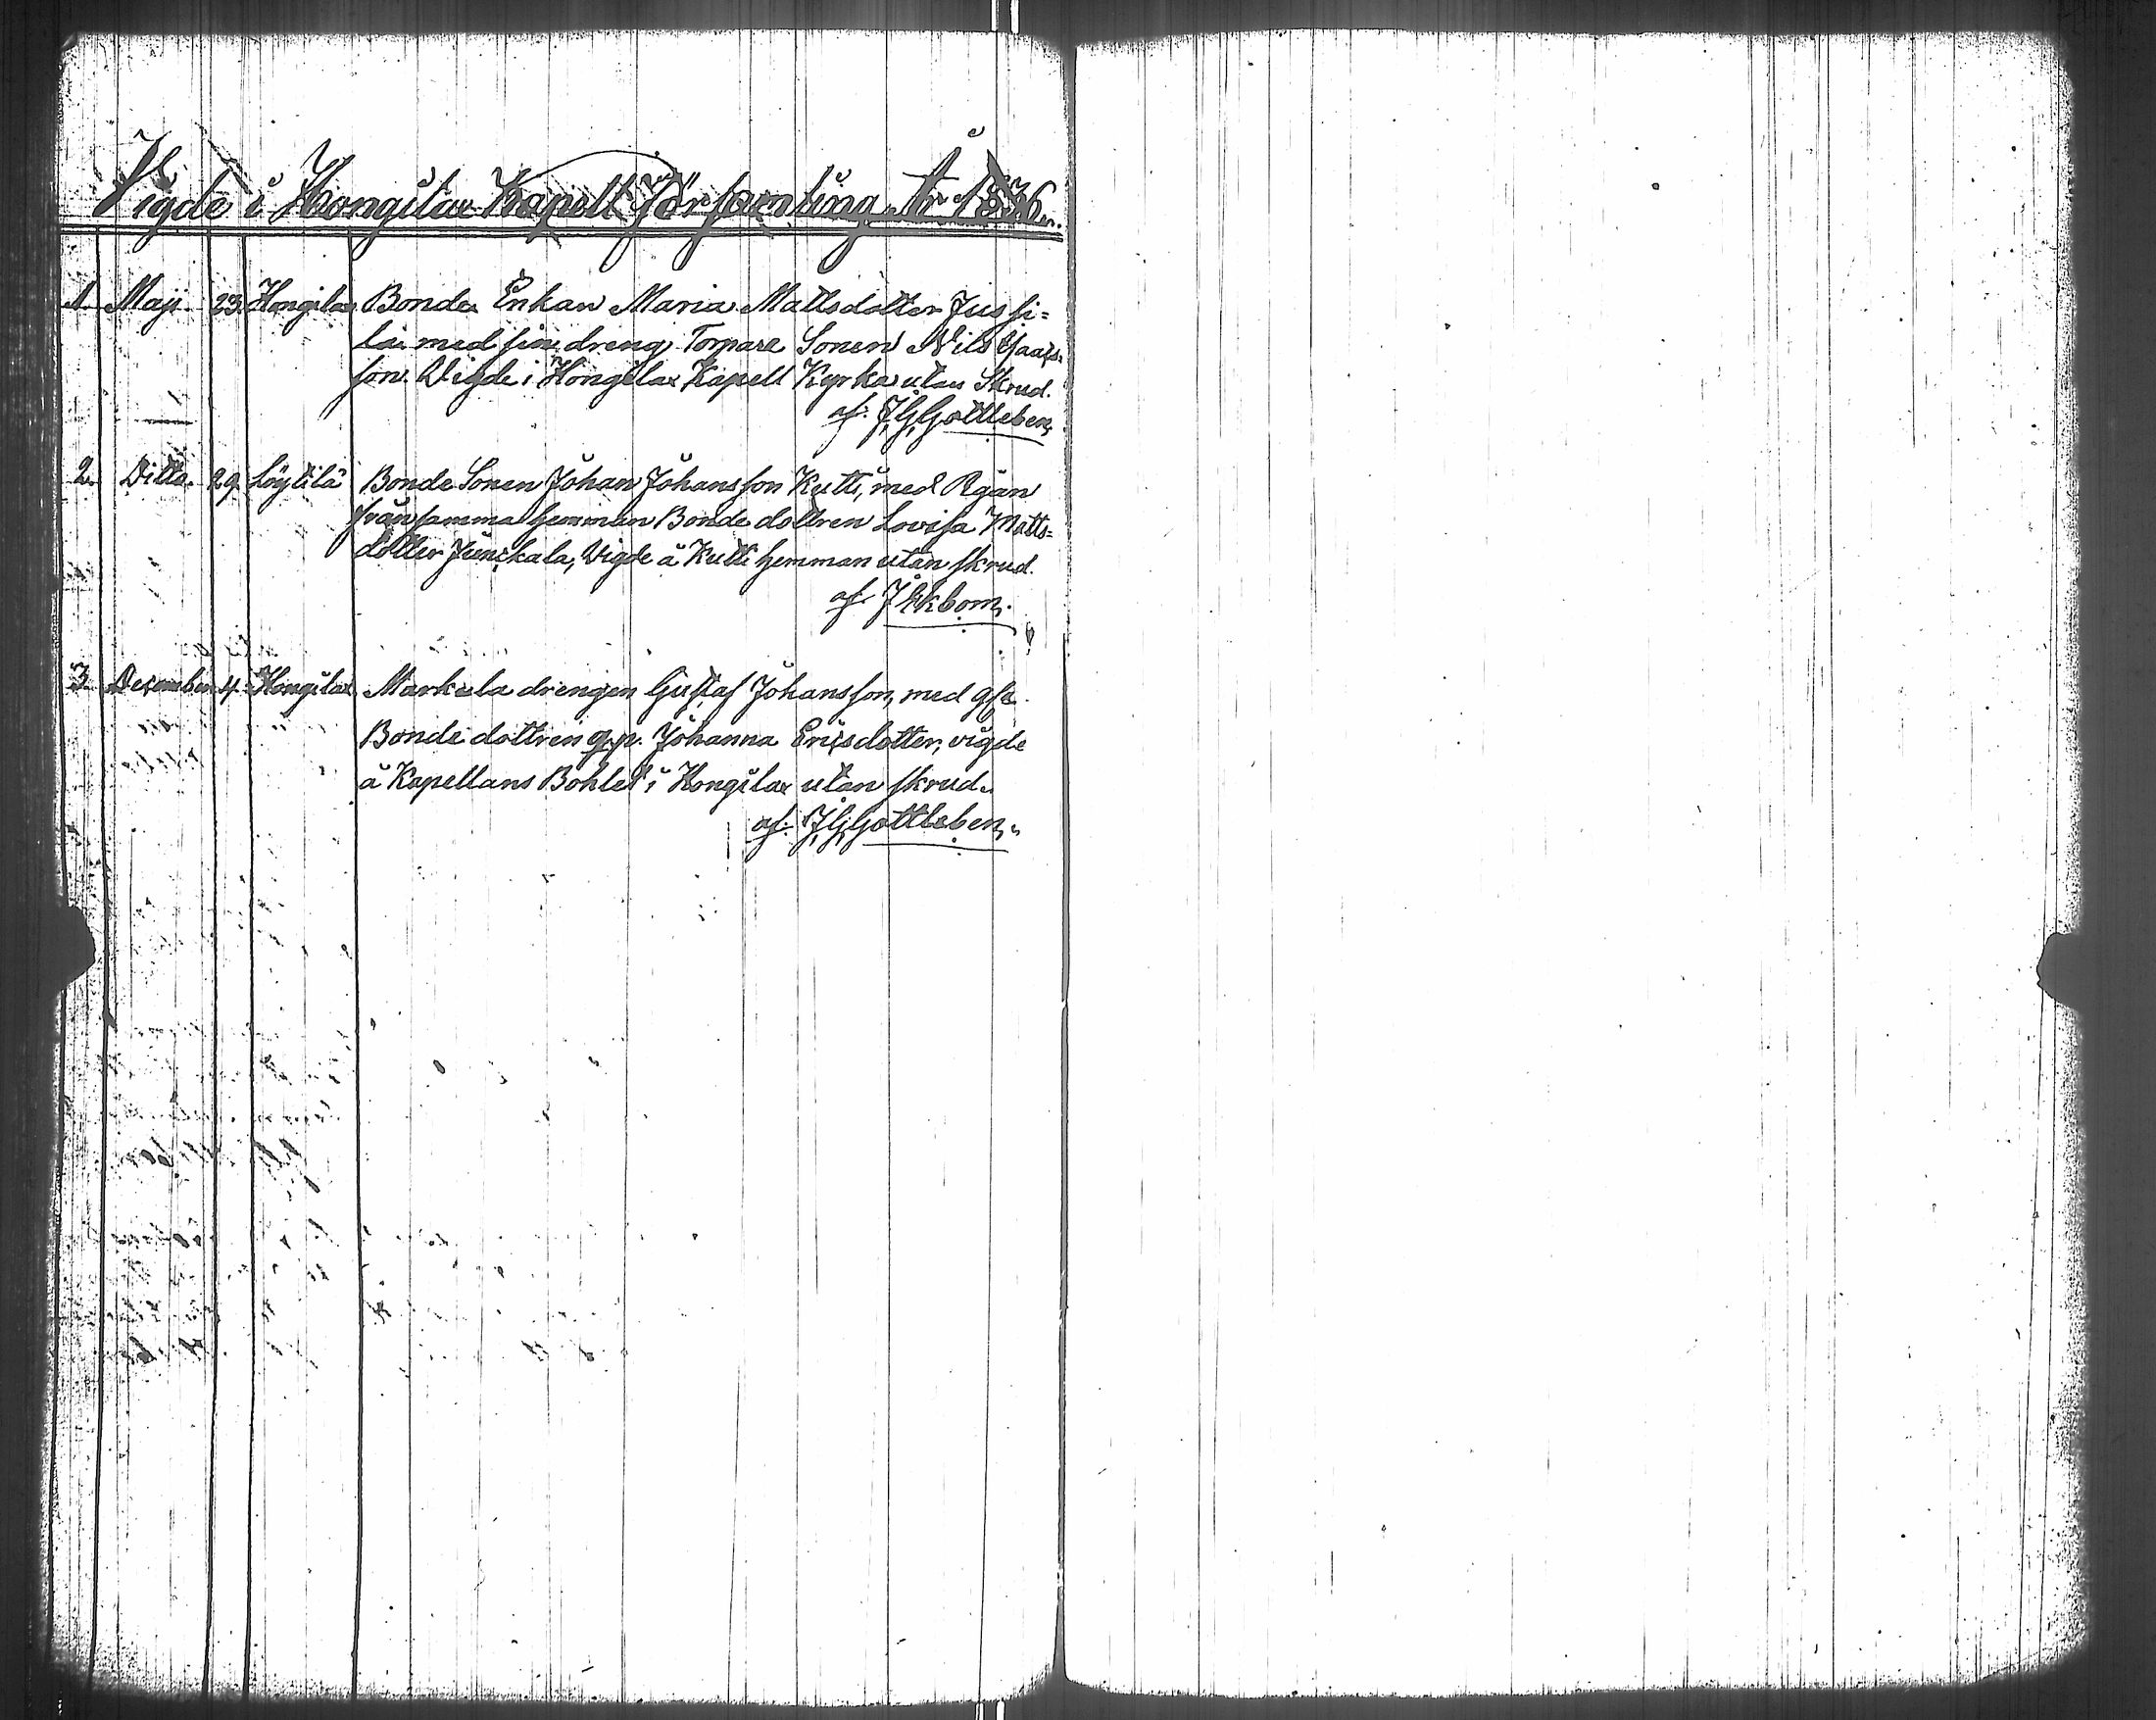 Vigde i Hongilax Kapell Församling År 1836.
1. Maji 23. Hongilax Bonde Enkan Maria Mattsdotter Jussi=
la med sin dreng Torpare Sonen Nils Isaacs=
son. Vigde i Hongilax Kapell Kyrka utan Skrud.
af. J. G. Gottleben,
2. Ditto. 29. Löytilä Bonde Sonen Johan Johansson Kutti, med Pgan
från samma hemman Bonde dottren Lovisa Matts=
dotter Junckala, Vigde å Kutti hemman utan skrud.
af. J Ekbom.
3. December 4. Hongilax Markula drengen Gustaf Johansson, med
Bonde dottren Johanna Ericsdotter, vigde
å Kapellans Bohlet i Hongilax utan skrud.
af. J. G. Gottleben.